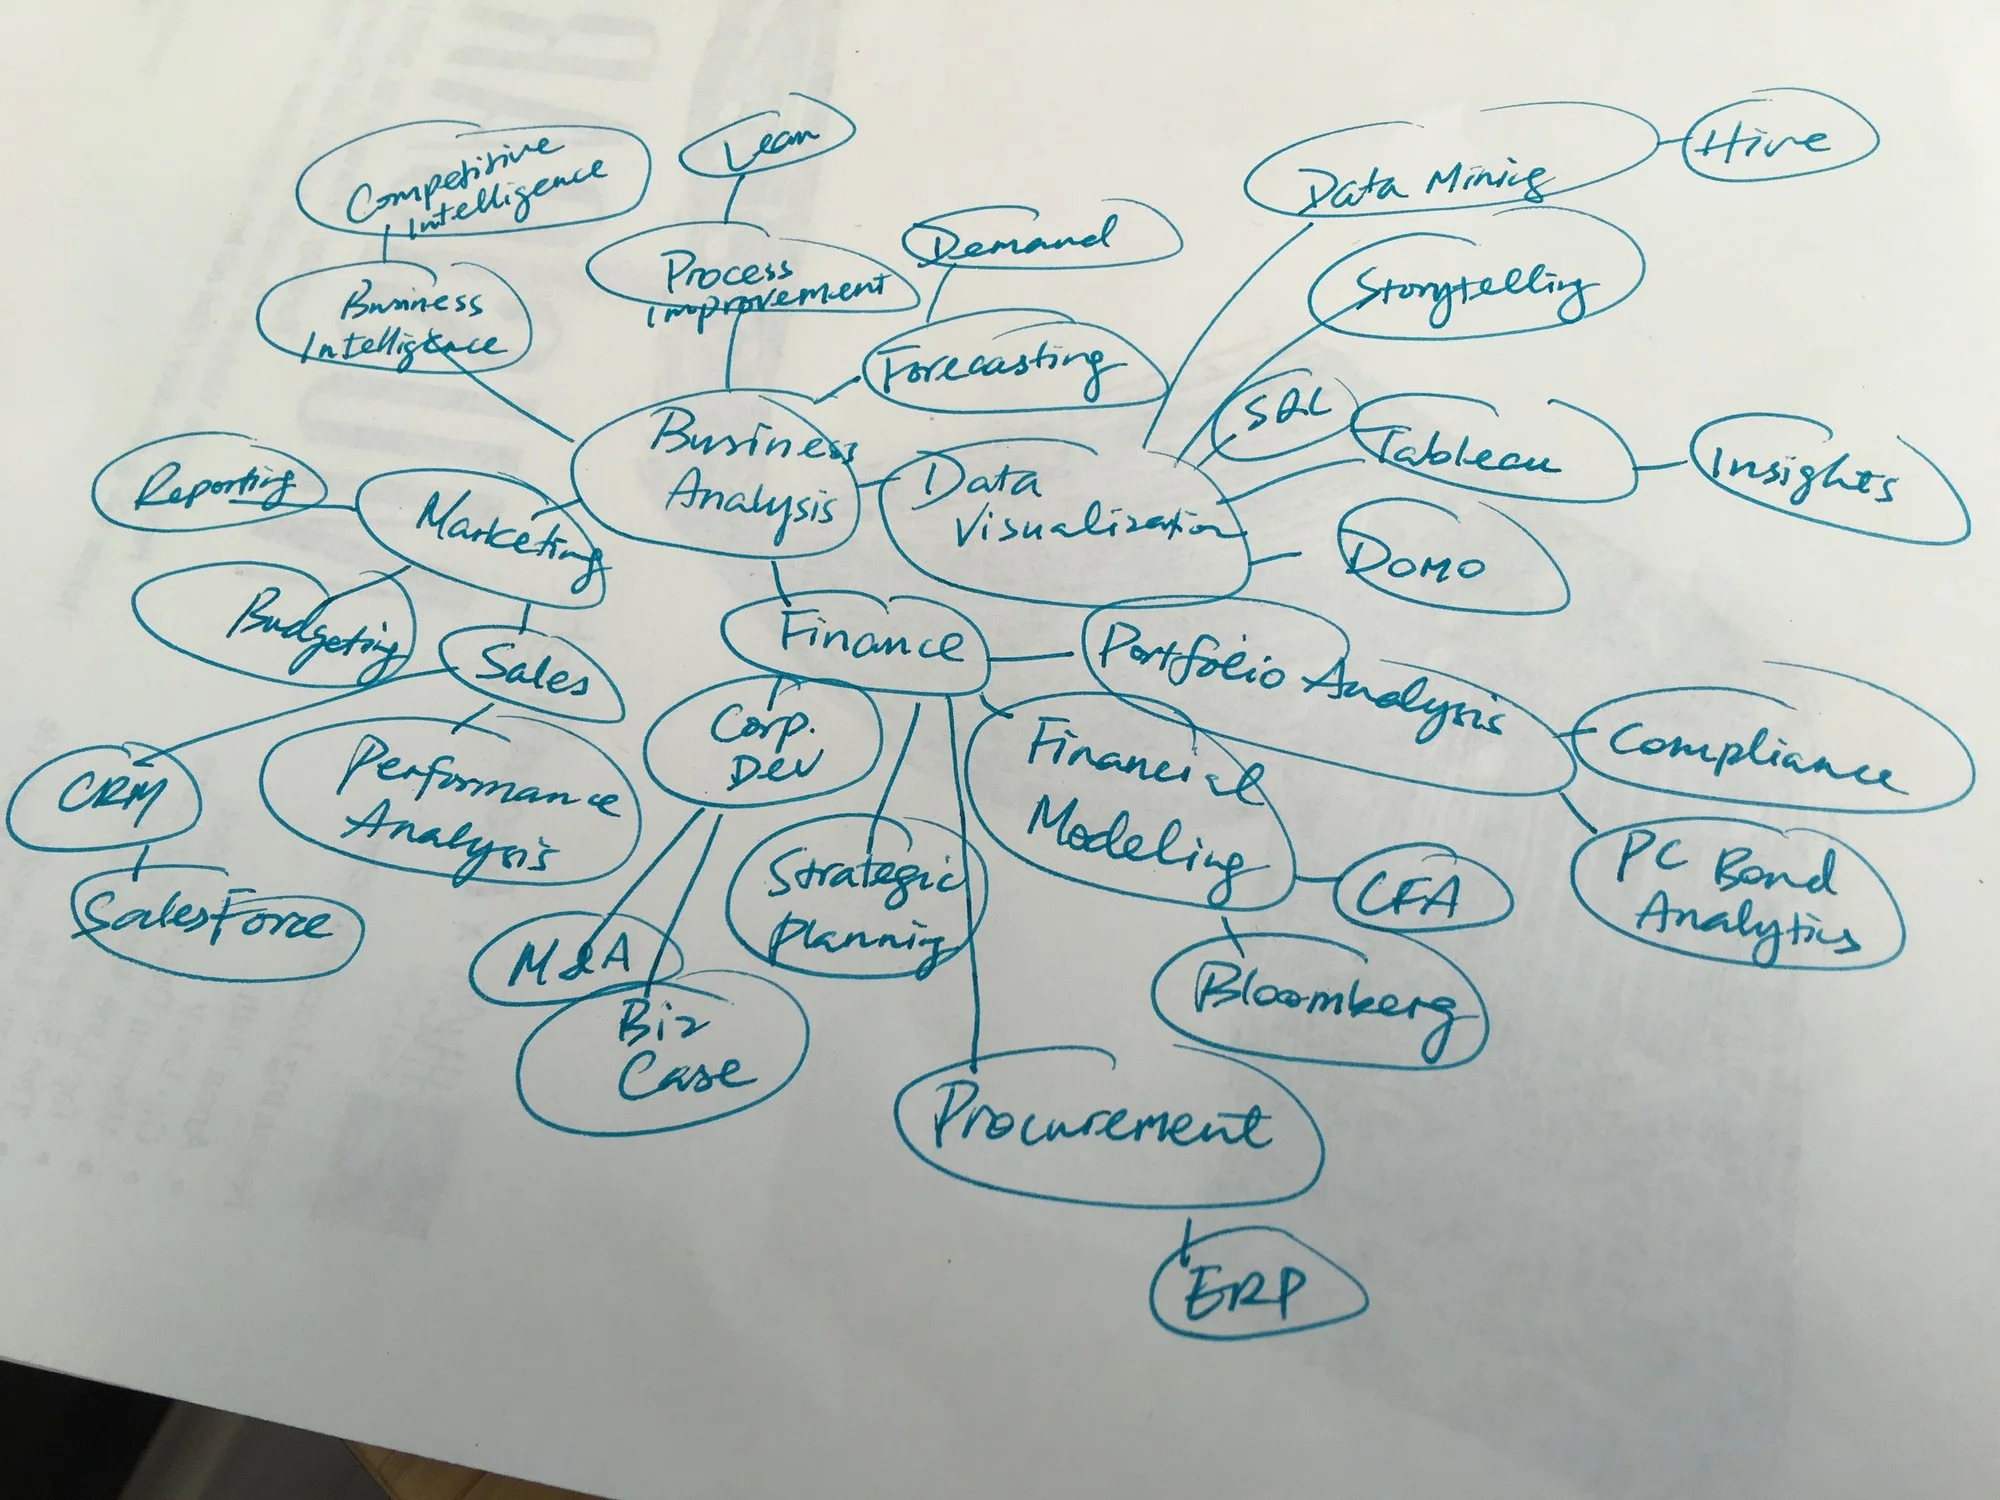 Competitive
Intelligence
Lean
Data Mining
Hive
Business
Intelligence
Process
improvement
Demand
Storytelling
Forecasting
SQL
Tableau
Insights
Reporting
Marketing
Business
Analysis
Data
Visualization
DOMO
Budgeting
Sales
Finance
Portfolio Analysis
Compliance
CRM
Performance
Analysis
Corp.
Dev
Financial
Modeling
PC Bond
Analytics
SalesForce
Strategic
planning
CFA
M&A
Biz
Case
Bloomberg
Procurement
ERP